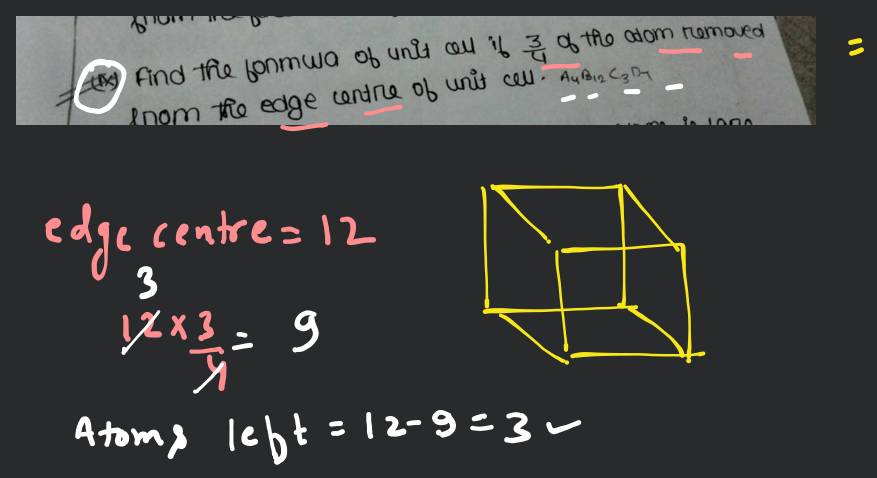 (ix) Find the formula of unit cell if 3/4 of the atom removed
from the edge centre of unit cell. A4B12C3D7
edge centre = 12
3
12 x 3/4 = 9
Atoms left = 12-9 = 3 ✓